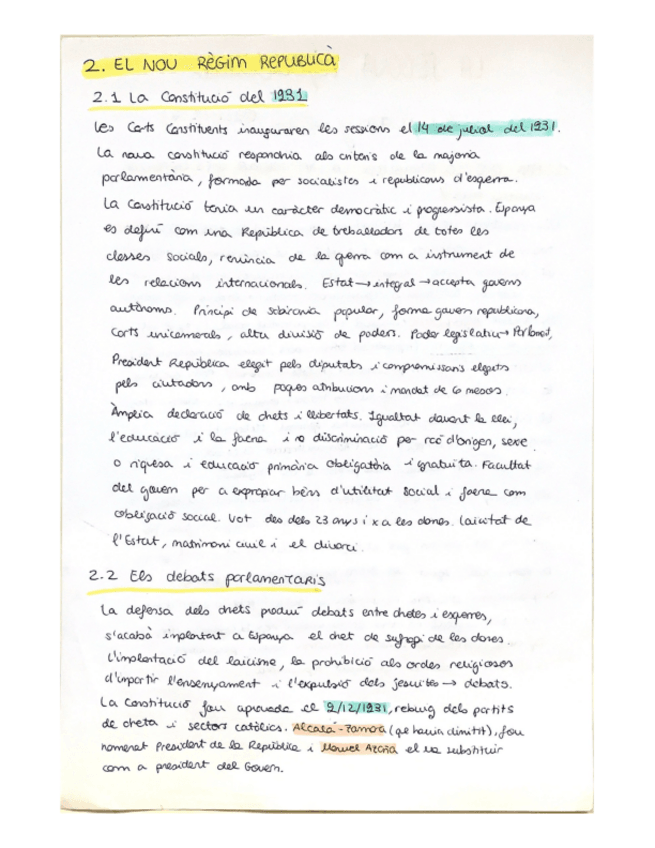 2. EL NOU RÈGIM REPUBLICÀ
2.1 La Constitució del 1931
Les Corts Constituents inauguraren les sessions el 14 de juliol del 1931.
La nova constitució respondria als criteris de la majoria
parlamentària, formada per socialistes i republicans d'esquerra.
La Constitució tenia un caràcter democràtic i progressista. Espanya
es definí com una República de treballadors de totes les
classes socials, renúncia de la guerra com a instrument de
les relacions internacionals. Estat → integral → accepta governs
autònoms. Principi de sobirania popular, forma govern republicana,
corts unicamerals, alta divisió de poders. Poder legislatiu → Parlament,
President República elegit pels diputats i compromissaris elegits
pels ciutadans, amb poques atribucions i mandat de 6 mesos.
Àmplia declaració de drets i llibertats. Igualtat davant la llei,
l'educació i la faena i no discriminació per raó d'origen, sexe
o riquesa i educació primària obligatòria i gratuïta. Facultat
del govern per a expropiar béns d'utilitat social i faena com
obligació social. Vot des dels 23 anys i x a les dones. Laïcitat de
l'Estat, matrimoni civil i el divorci.
2.2 Els debats parlamentaris
La defensa dels drets produí debats entre dretes i esquerres,
s'acabà implantant a Espanya el dret de sufragi de les dones.
L'implantació del laïcisme, la prohibició als ordes religiosos
d'impartir l'ensenyament i l'expulsió dels jesuïtes → debats.
La Constitució fou aprovada el 9/12/1931, rebuig dels partits
de dreta i sectors catòlics. Alcalá-Zamora (qe havia dimitit), fou
nomenat President de la República i Manuel Azaña el va substituir
com a president del Govern.